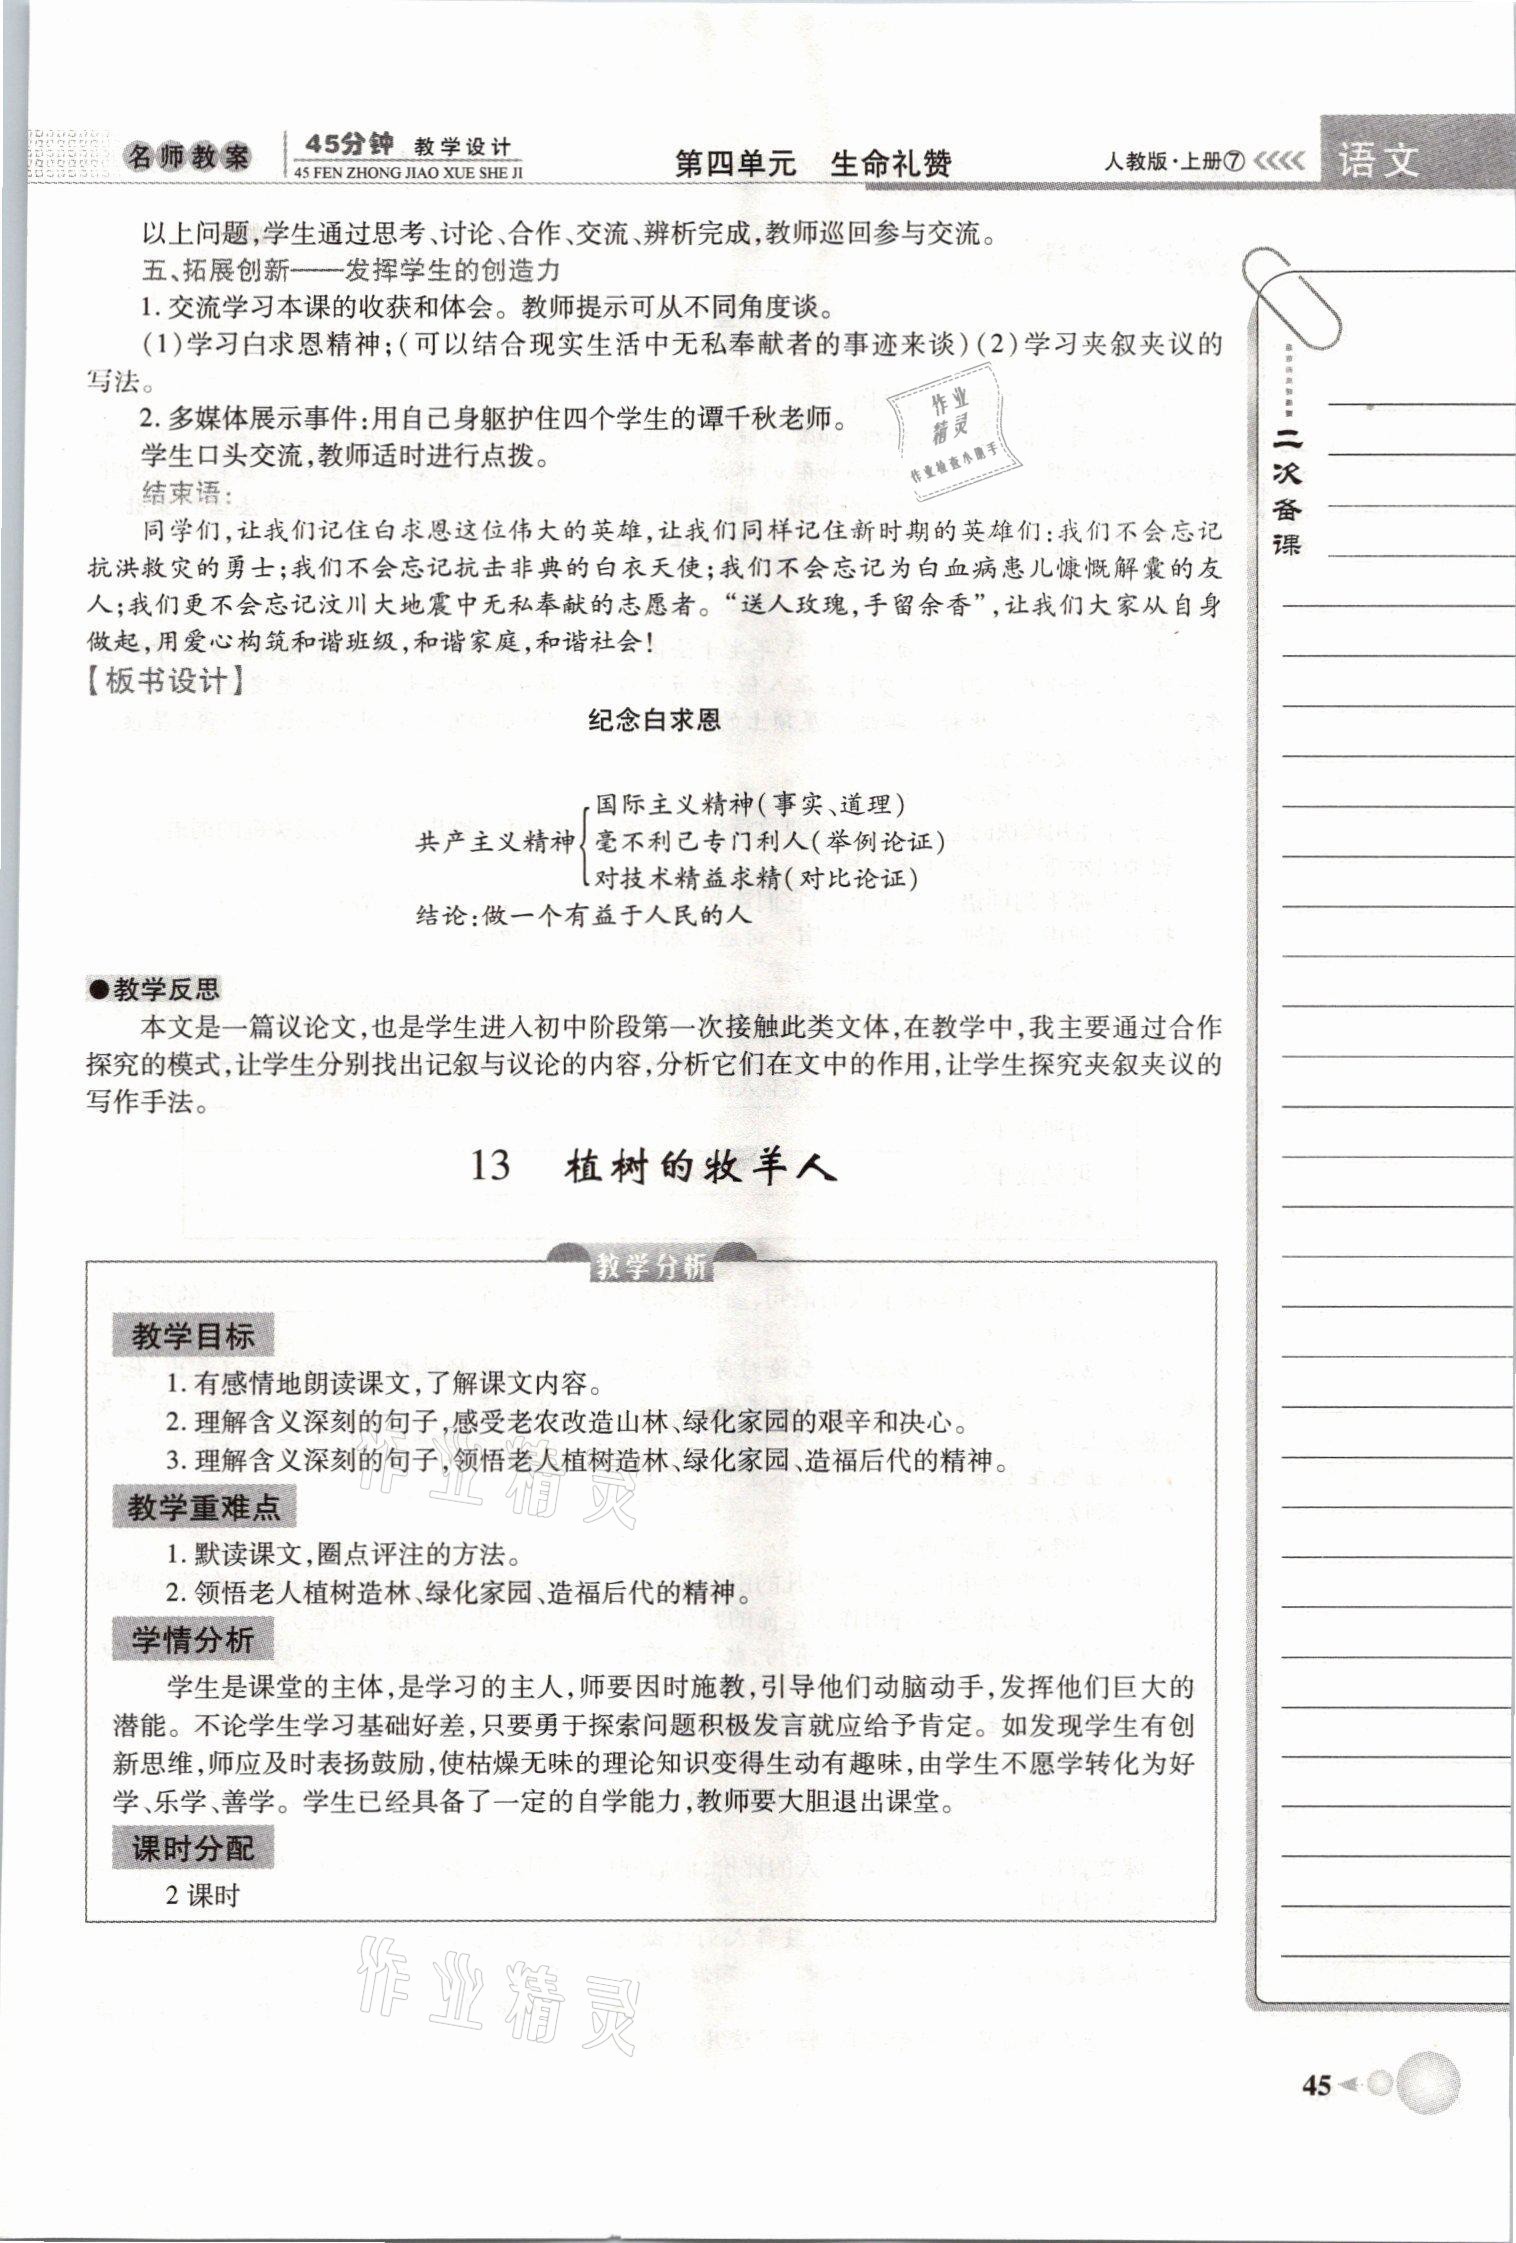 名师教案
45分钟 教学设计
45 FEN ZHONG JIAO XUE SHE JI
第四单元 生命礼赞
人教版·上册⑦
语文
以上问题,学生通过思考、讨论、合作、交流、辨析完成,教师巡回参与交流。
五、拓展创新——发挥学生的创造力
1. 交流学习本课的收获和体会。教师提示可从不同角度谈。
(1)学习白求恩精神;(可以结合现实生活中无私奉献者的事迹来谈)(2)学习夹叙夹议的
写法。
2. 多媒体展示事件:用自己身躯护住四个学生的谭千秋老师。
学生口头交流,教师适时进行点拨。
结束语:
同学们,让我们记住白求恩这位伟大的英雄,让我们同样记住新时期的英雄们:我们不会忘记
抗洪救灾的勇士;我们不会忘记抗击非典的白衣天使;我们不会忘记为白血病患儿慷慨解囊的友
人;我们更不会忘记汶川大地震中无私奉献的志愿者。“送人玫瑰,手留余香”,让我们大家从自身
做起,用爱心构筑和谐班级,和谐家庭,和谐社会!
【板书设计】
纪念白求恩
共产主义精神
国际主义精神(事实、道理)
毫不利己专门利人(举例论证)
对技术精益求精(对比论证)
结论:做一个有益于人民的人
●教学反思
本文是一篇议论文,也是学生进入初中阶段第一次接触此类文体,在教学中,我主要通过合作
探究的模式,让学生分别找出记叙与议论的内容,分析它们在文中的作用,让学生探究夹叙夹议的
写作手法。
13 植树的牧羊人
教学分析
教学目标
1. 有感情地朗读课文,了解课文内容。
2. 理解含义深刻的句子,感受老农改造山林、绿化家园的艰辛和决心。
3. 理解含义深刻的句子,领悟老人植树造林、绿化家园、造福后代的精神。
教学重难点
1. 默读课文,圈点评注的方法。
2. 领悟老人植树造林、绿化家园、造福后代的精神。
学情分析
学生是课堂的主体,是学习的主人,师要因时施教,引导他们动脑动手,发挥他们巨大的
潜能。不论学生学习基础好差,只要勇于探索问题积极发言就应给予肯定。如发现学生有创
新思维,师应及时表扬鼓励,使枯燥无味的理论知识变得生动有趣味,由学生不愿学转化为好
学、乐学、善学。学生已经具备了一定的自学能力,教师要大胆退出课堂。
课时分配
2 课时
二次备课
45
作业
精灵
作业检查小助手
作业精灵
作业精灵